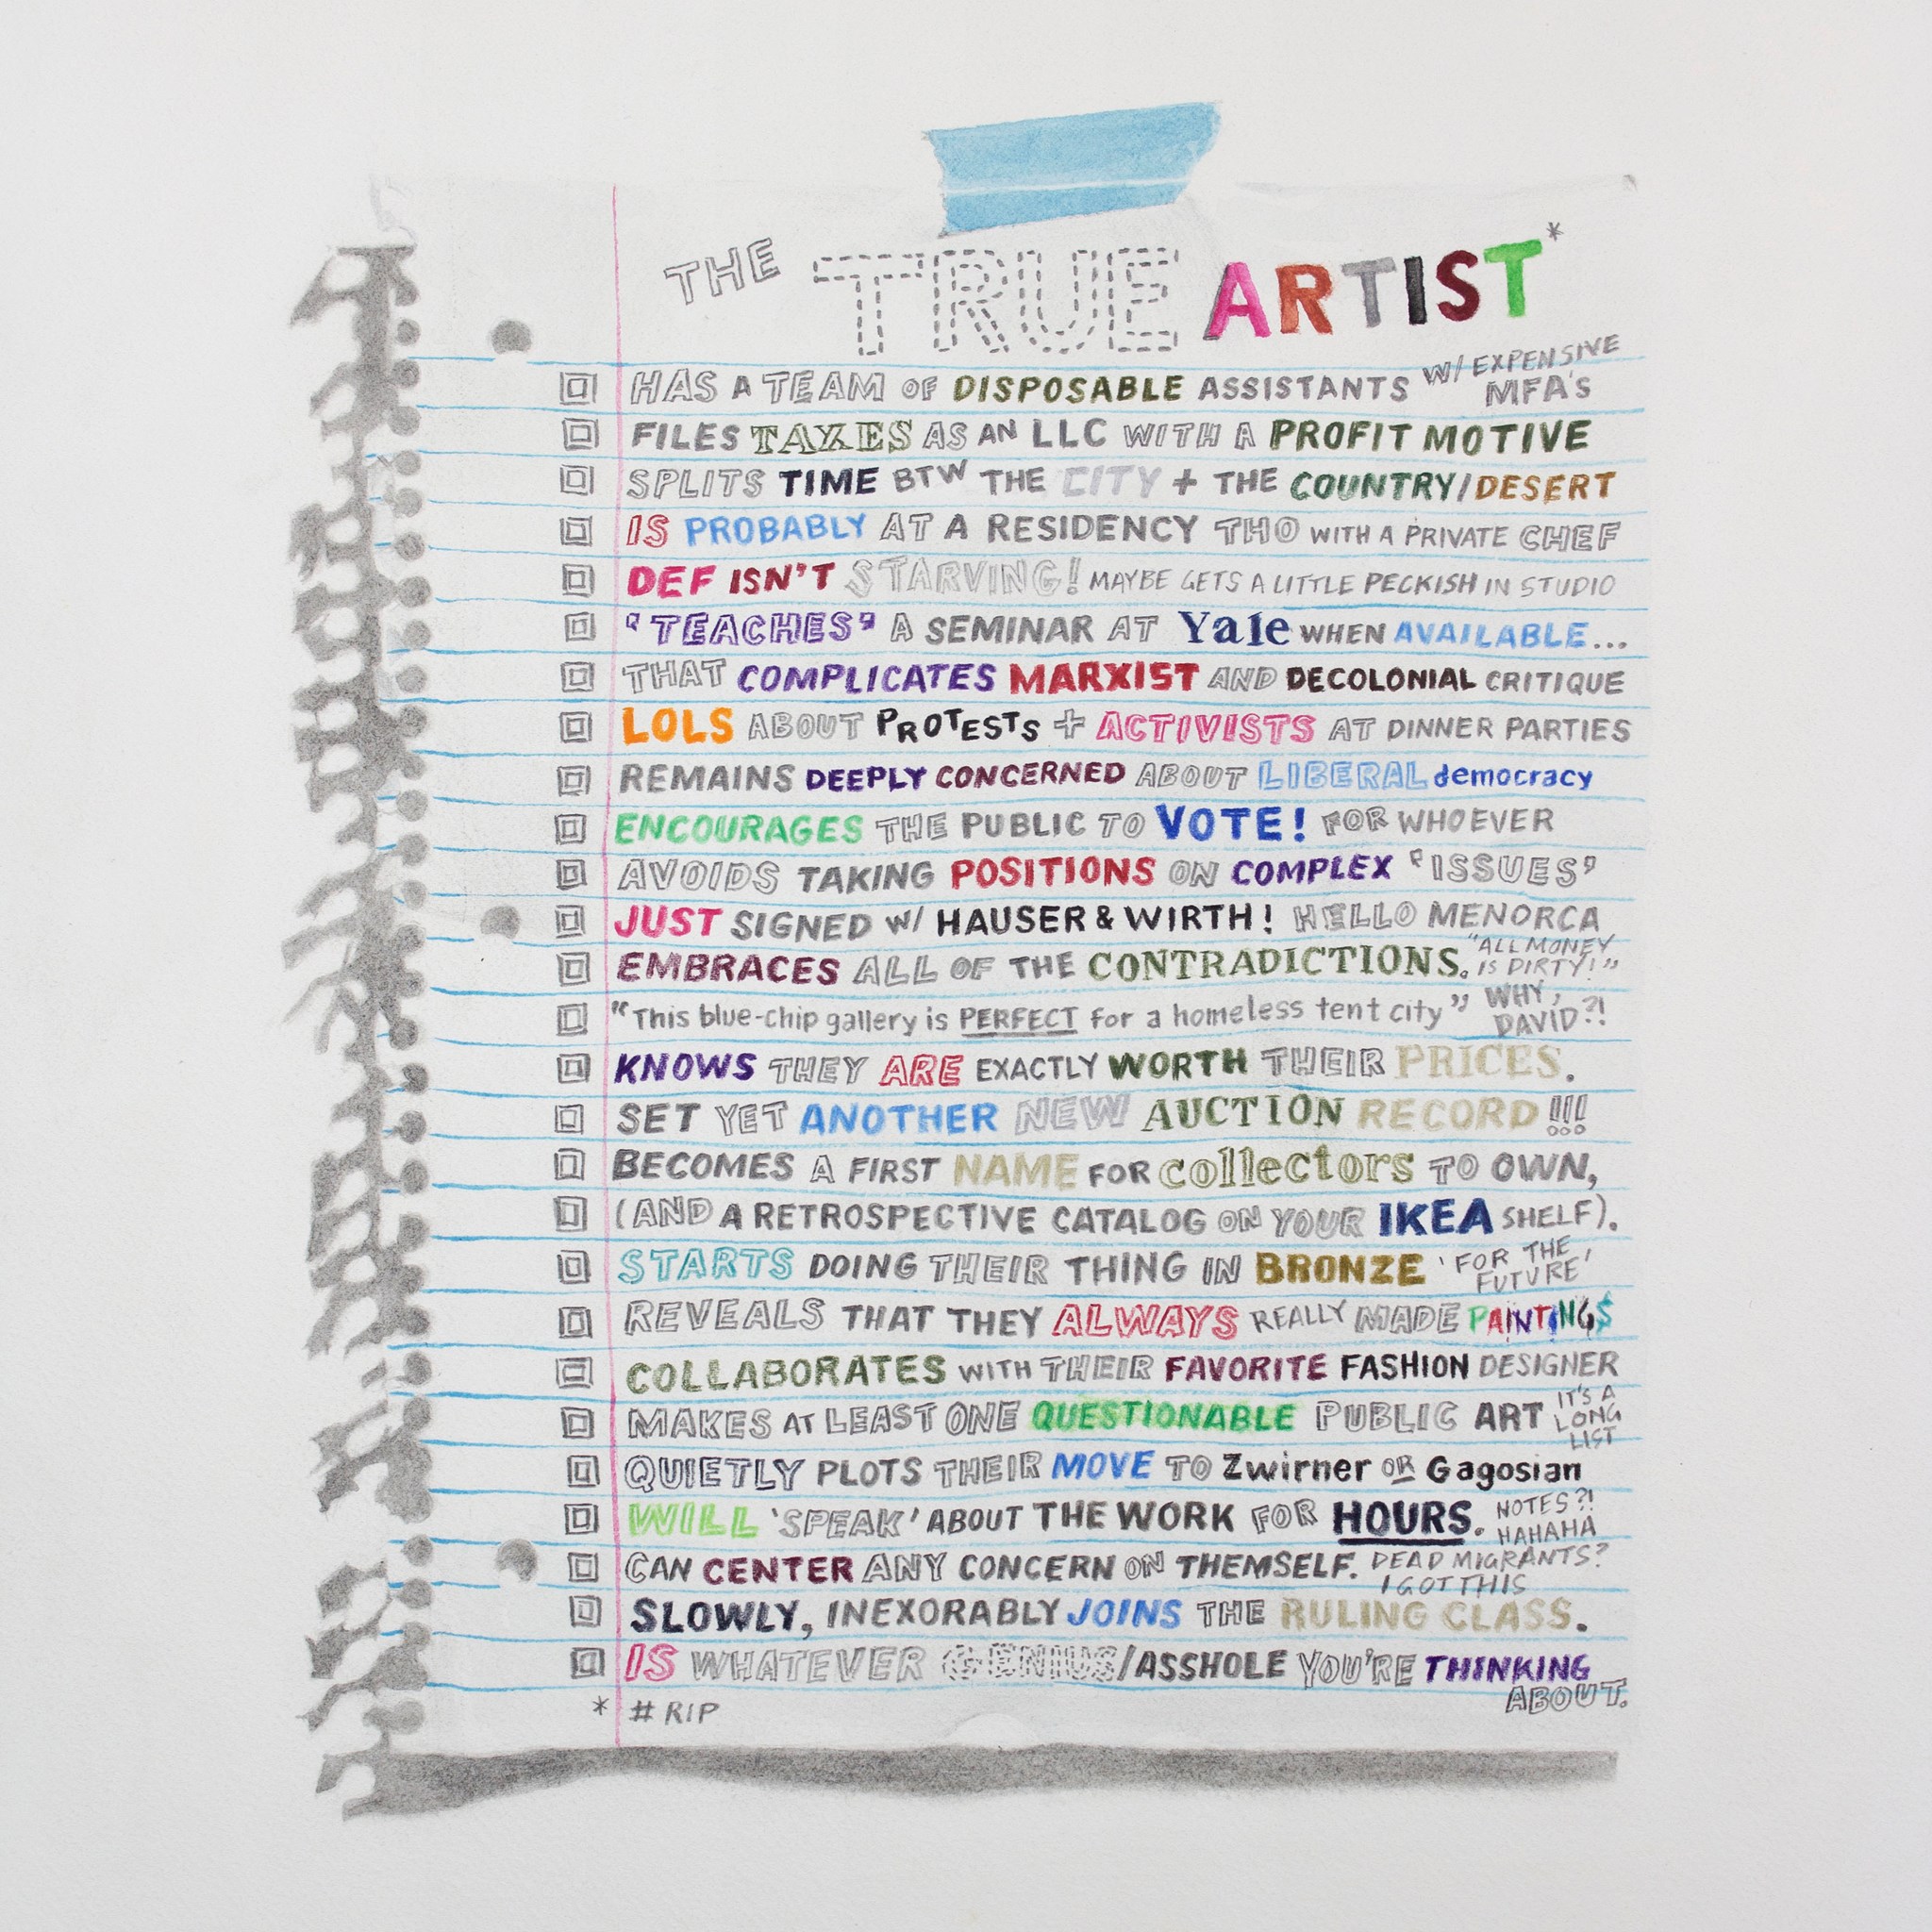 THE TRUE ARTIST*
HAS A TEAM OF DISPOSABLE ASSISTANTS W/ EXPENSIVE MFA'S
FILES TAXES AS AN LLC WITH A PROFIT MOTIVE
SPLITS TIME BTW THE CITY + THE COUNTRY/DESERT
IS PROBABLY AT A RESIDENCY THO WITH A PRIVATE CHEF
DEF ISN'T STARVING! MAYBE GETS A LITTLE PECKISH IN STUDIO
'TEACHES' A SEMINAR AT Yale WHEN AVAILABLE...
THAT COMPLICATES MARXIST AND DECOLONIAL CRITIQUE
LOLS ABOUT PROTESTS + ACTIVISTS AT DINNER PARTIES
REMAINS DEEPLY CONCERNED ABOUT LIBERAL democracy
ENCOURAGES THE PUBLIC TO VOTE! FOR WHOEVER
AVOIDS TAKING POSITIONS ON COMPLEX 'ISSUES'
JUST SIGNED W/ HAUSER & WIRTH! HELLO MENORCA
EMBRACES ALL OF THE CONTRADICTIONS. "ALL MONEY IS DIRTY!"
"This blue-chip gallery is PERFECT for a homeless tent city" WHY, DAVID?!
KNOWS THEY ARE EXACTLY WORTH THEIR PRICES.
SET YET ANOTHER NEW AUCTION RECORD!!!
BECOMES A FIRST NAME FOR collectors TO OWN,
(AND A RETROSPECTIVE CATALOG ON YOUR IKEA SHELF).
STARTS DOING THEIR THING IN BRONZE 'FOR THE FUTURE'
REVEALS THAT THEY ALWAYS REALLY MADE PAINTING$
COLLABORATES WITH THEIR FAVORITE FASHION DESIGNER
MAKES AT LEAST ONE QUESTIONABLE PUBLIC ART IT'S A LONG LIST
QUIETLY PLOTS THEIR MOVE TO Zwirner OR Gagosian
WILL 'SPEAK' ABOUT THE WORK FOR HOURS. NOTES?! HAHAHA
CAN CENTER ANY CONCERN ON THEMSELF. DEAD MIGRANTS? I GOT THIS
SLOWLY, INEXORABLY JOINS THE RULING CLASS.
IS WHATEVER GENIUS/ASSHOLE YOU'RE THINKING ABOUT.
* #RIP